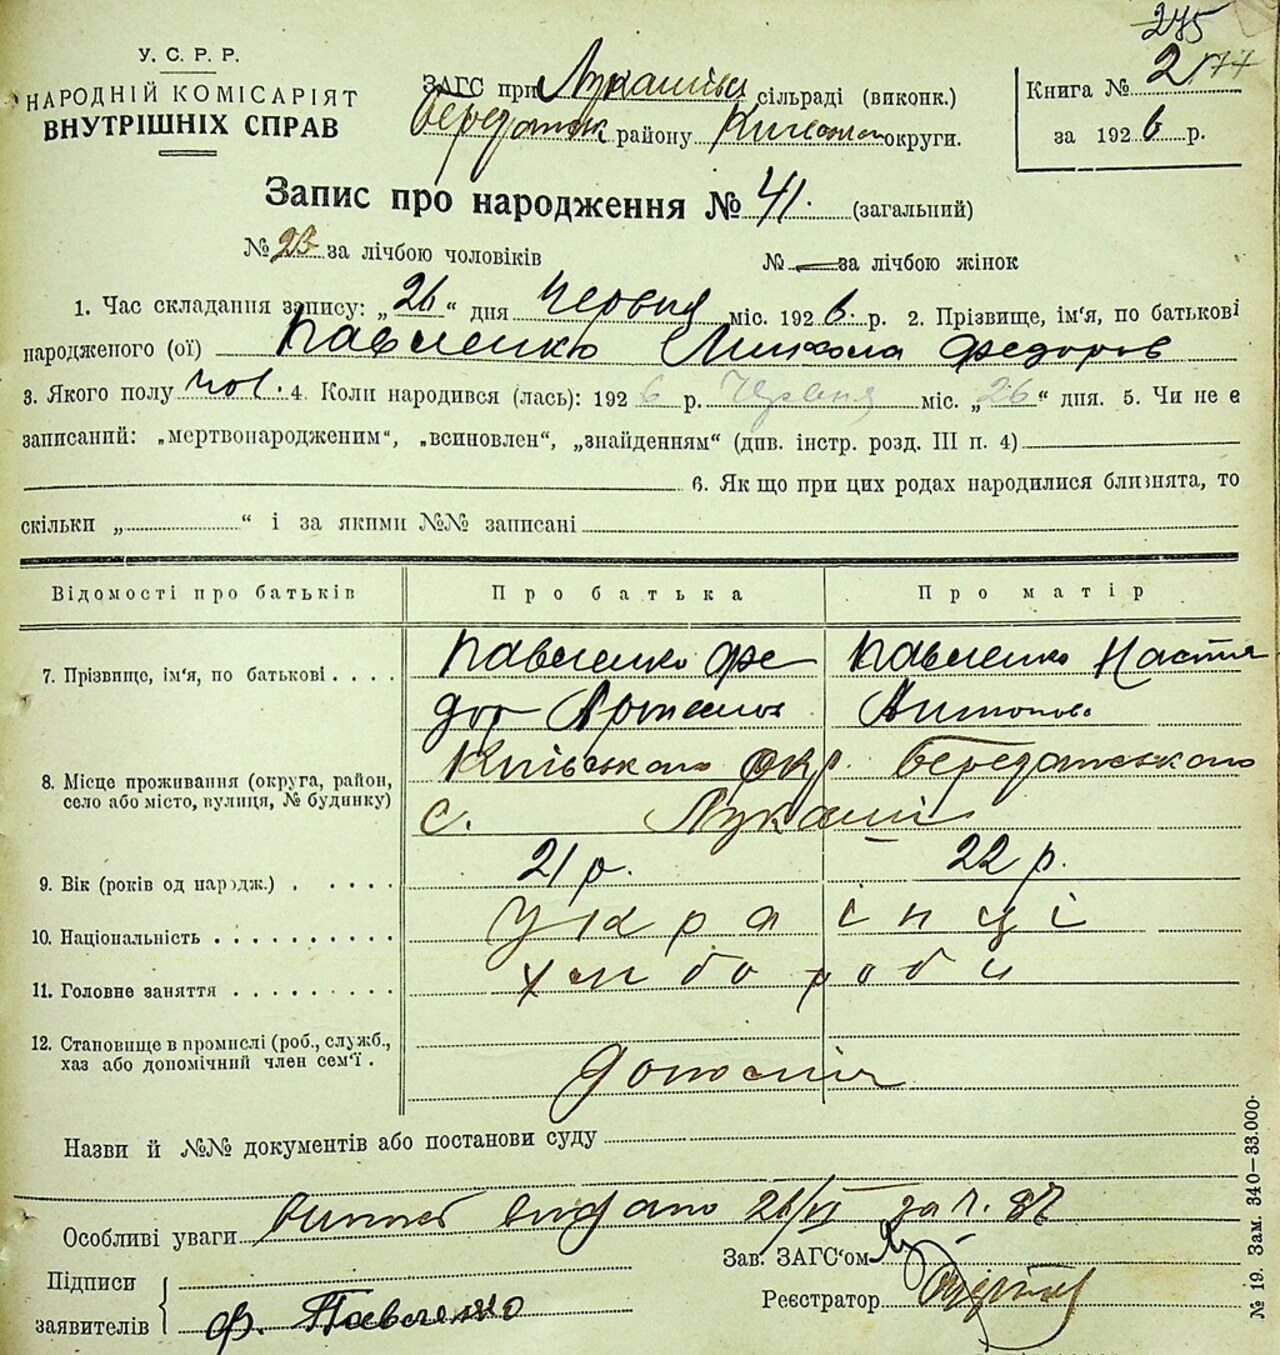 245
У. С. Р. Р.
НАРОДНІЙ КОМІСАРІЯТ
ВНУТРІШНІХ СПРАВ
ЗАГС при Лукашівск сільраді (виконк.)
району округи.
Книга № 2 177
за 1926 р.
Запис про народження № 41. (загальний)
№ 23 за лічбою чоловіків № — за лічбою жінок
1. Час складання запису: „26“ дня Червня міс. 1926. р. 2. Прізвище, ім'я, по батькові
народженого (ої) Павленко Микола Федоров
3. Якого полу чол. 4. Коли народився (лась): 1926 р. Червня міс. „26“ дня. 5. Чи не є
записаний: „мертвонародженим“, „всиновлен“, „знайденням“ (див. інстр. розд. III п. 4)
6. Як що при цих родах народилися близнята, то
скільки „ “ і за якими №№ записані
Відомості про батьків Про батька Про матір
7. Прізвище, ім'я, по батькові . . . . Павленко Фе- Павленко Настя
дор Антонова
8. Місце проживання (округа, район, Київського окр.
село або місто, вулиця, № будинку) с. Лукаші
9. Вік (років од народж.) . . . . . 21 р. 22 р.
10. Національність . . . . . . . . . . Українці
11. Головне заняття . . . . . . . . . хлибороби
12. Становище в промислі (роб., служб.,
хаз або допомічний член сем'ї .
Назви й №№ документів або постанови суду
Особливі уваги видано 26/VI за ч. 87
Зав. ЗАГС'ом
Підписи
заявителів Ф. Павленко
Реєстратор
№ 19. Зам. 340—33.000.